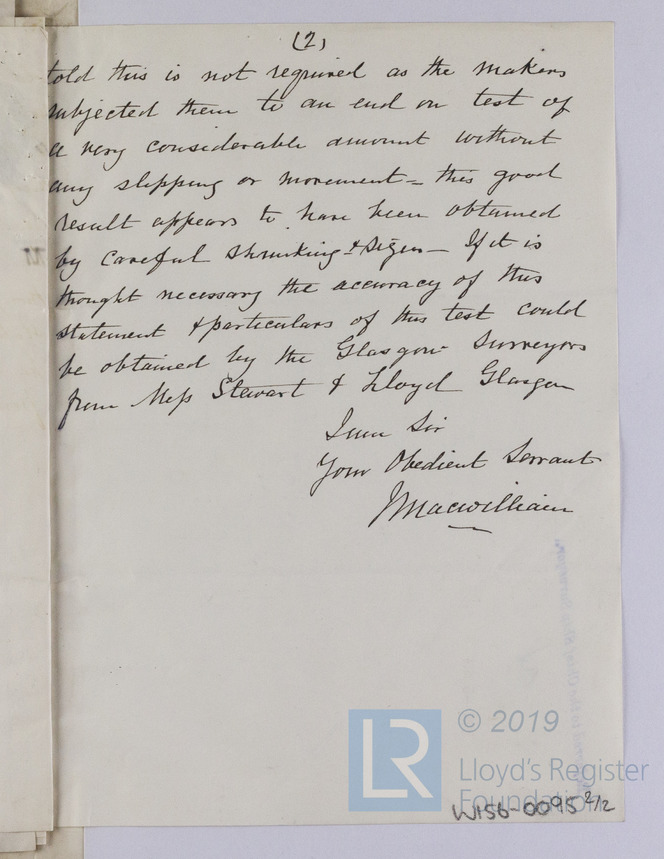 (2)
told this is not required as the makers
subjected them to an end on test of
a very considerable amount without
any slipping or movement – this good
result appears to have been obtained
by careful shrinking & sizes – If it is
thought necessary the accuracy of this
statement & particulars of this test could
be obtained by the Glasgow Surveyors
from Mess Stewart & Lloyd Glasgow
I am Sir
Your Obedient Servant
J Macwilliam
© 2019
LR
Lloyd's Register
Foundation
W156-0095 2/2